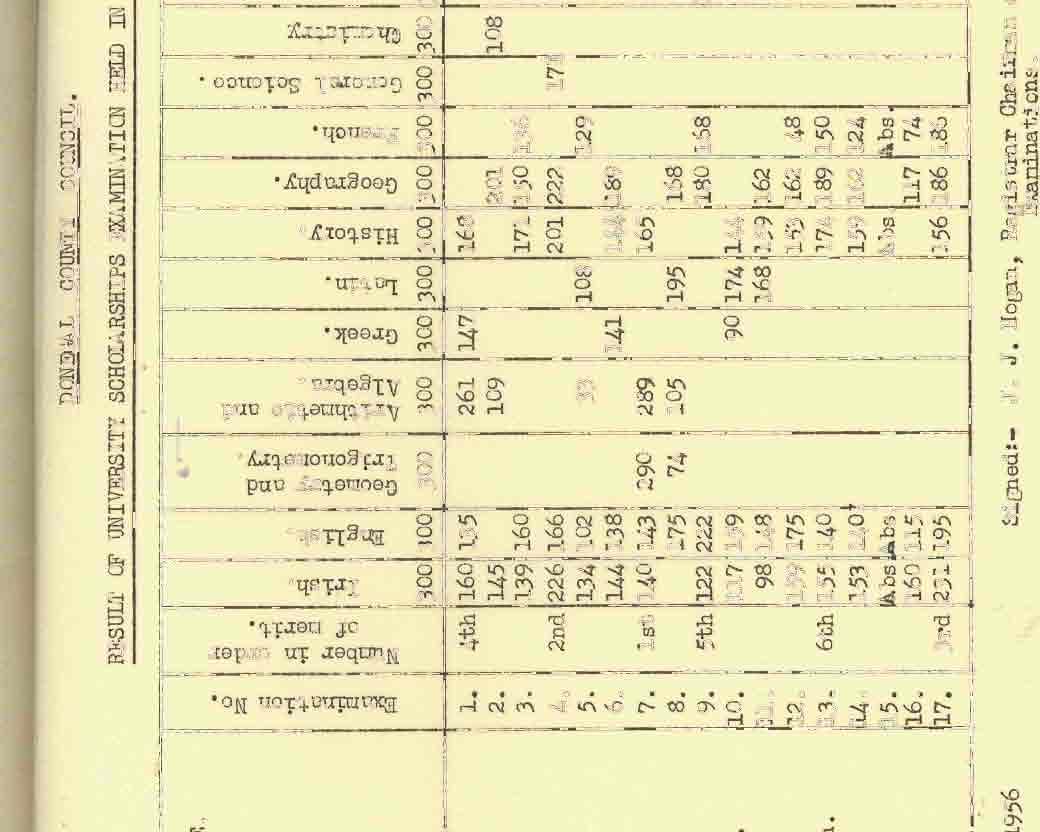 DONEGAL COUNTY COUNCIL.
RESULT OF UNIVERSITY SCHOLARSHIPS EXAMINATION HELD IN
Examination No. Number in order of merit. Irish. English. Geometry and Trigonometry. Arithmetic and Algebra. Greek. Latin. History. Geography. French. General Science. Chemistry
300 300 300 300 300 300 300 300 300 300 300
1. 4th 160 135 261 147
2. 145 109 201 108
3. 139 160 171 150
4. 2nd 226 166 201 222 171
5. 134 102 33 108 129
6. 144 138 141 189
7. 1st 140 143 290 289 165
8. 175 74 105 195 168
9. 5th 122 222 180 168
10. 117 159 90 174 144
11. 98 148 168 159 162
12. 159 175 153 162 48
13. 6th 155 140 174 189 150
14. 153 140 159 162 124
15. Abs Abs Abs Abs.
16. 160 115 117 74
17. 3rd 231 195 156 186 186
1956 Signed:- J. J. Hogan, Registrar Chairman
Examinations.